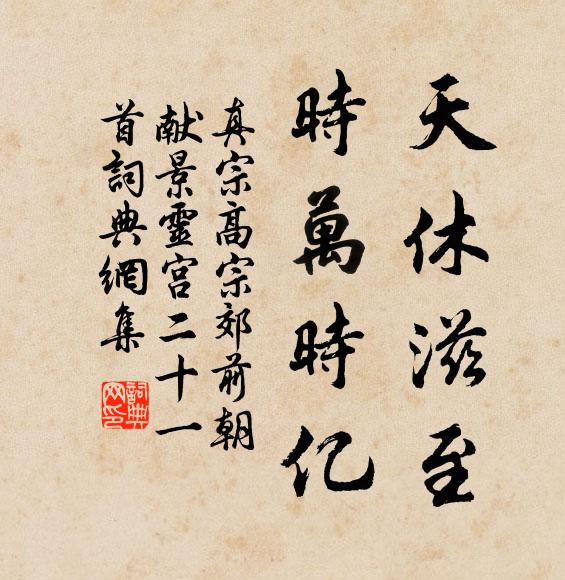 天休滋至
時萬時亿
真宗高宗郊前朝
献景靈宫二十一
首詞典網集
詞典
网印